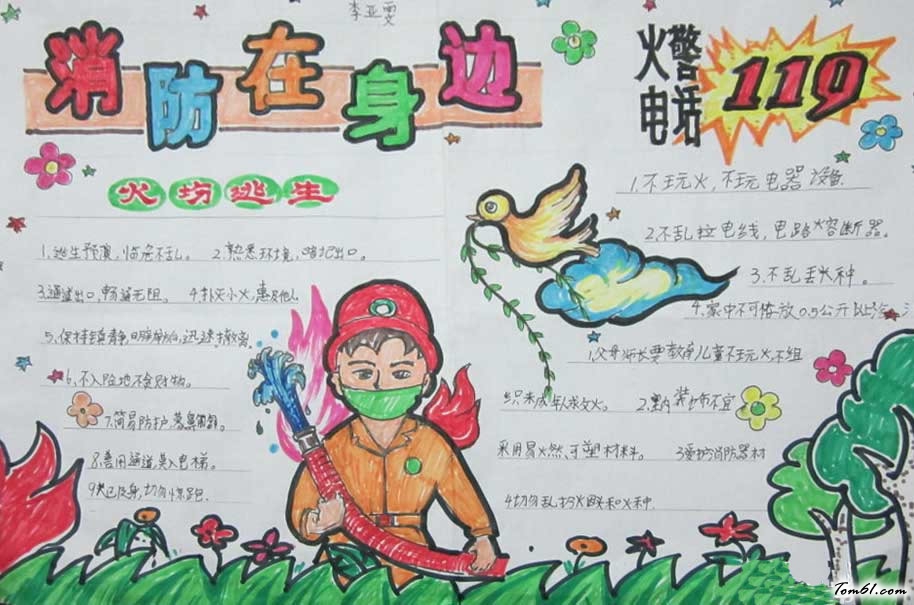 李亚雯
消防在身边
火警
电话
119
火场逃生
1.逃生预演,临危不乱。 2.熟悉环境,暗记出口。
3.通道出口,畅通无阻。 4.扑灭小火,惠及他人
5.保持镇静,明辨方向,迅速撤离。
6.不入险地,不贪财物。
7.简易防护,蒙鼻匍匐。
8.善用通道,莫入电梯。
9.火已及身,切勿惊跑.
1.不玩火,不玩电器设备.
2.不乱拉电线,电路熔断器。
3.不乱丢火种。
4.家中不可存放0.5公升以
1.父母师长要教育儿童不玩火,不组
织未成年人救火。 2.室内装饰不宜
采用易火燃、可塑材料。 3爱护消防器材
4.切勿乱扔火烟头和火种.
Tom61.com